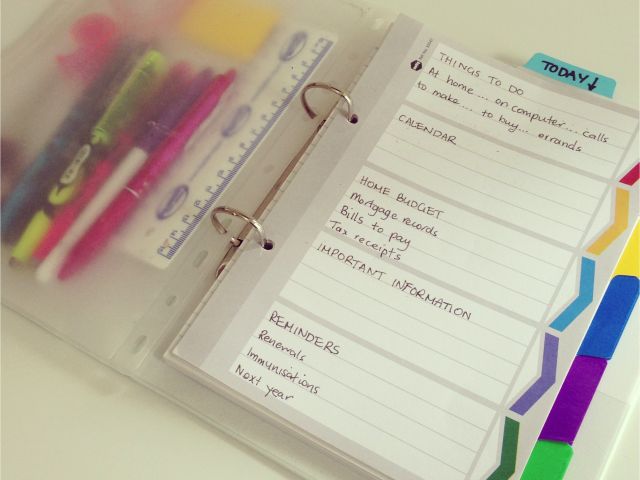 TODAY ↓
THINGS TO DO
At home... on computer... calls
to make... to buy... errands
CALENDAR
HOME BUDGET
Mortgage records
Bills to pay
Tax receipts
IMPORTANT INFORMATION
REMINDERS
Renewals
Immunisations
Next year